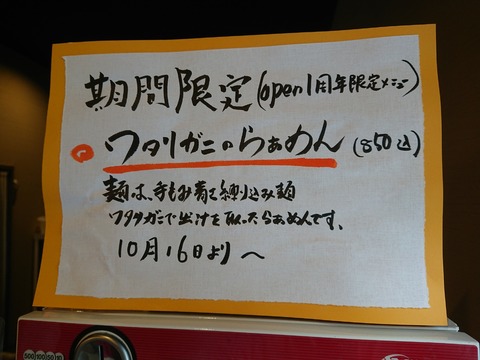 期間限定(open1周年限定メニュー)
ワタリガニのらぁめん(850込)
麺は、手もみ青さ練り込み麺
ワタリガニで出汁を取ったらぁめんです。
10月16日より〜
500 100 50 10